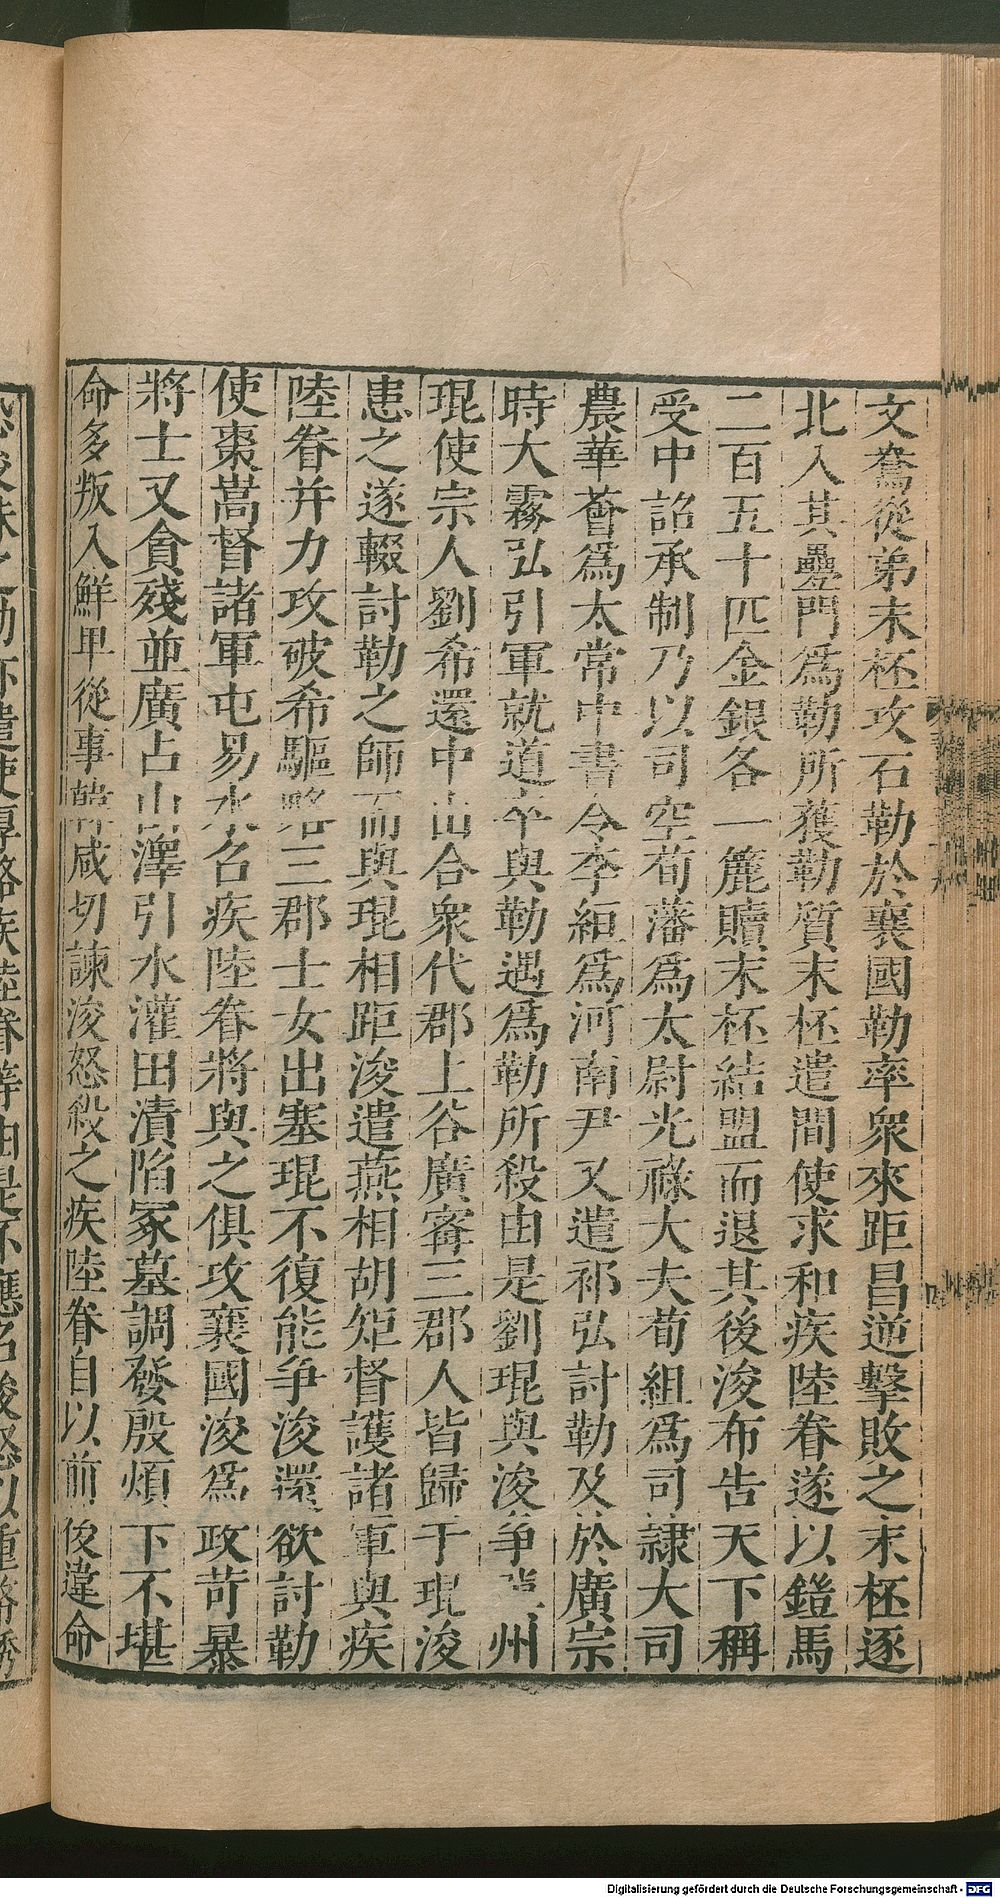 文鴦從弟末柸攻石勒於襄國勒率衆來距昌逆擊敗之末柸逐
北入其壘門爲勒所獲勒質末柸遣間使求和疾陸眷遂以鎧馬
二百五十匹金銀各一簏贖末柸結盟而退其後浚布告天下稱
受中詔承制乃以司空荀藩爲太尉光祿大夫荀組爲司隸大司
農華薈爲太常中書令李絙爲河南尹又遣祁弘討勒及於廣宗
時大霧弘引軍就道卒與勒遇爲勒所殺由是劉琨與浚爭冀州
琨使宗人劉希還中山合衆代郡上谷廣甯三郡人皆歸于琨浚
患之遂輟討勒之師而與琨相距浚遣燕相胡矩督護諸軍與疾
陸眷并力攻破希驅略三郡士女出塞琨不復能爭浚還欲討勒
使棗嵩督諸軍屯易水召疾陸眷將與之俱攻襄國浚爲政苛暴
將士又貪殘並廣占山澤引水灌田漬陷冢墓調發殷煩下不堪
命多叛入鮮卑從事韓咸切諫浚怒殺之疾陸眷自以前後違命
Digitalisierung gefördert durch die Deutsche Forschungsgemeinschaft - DFG